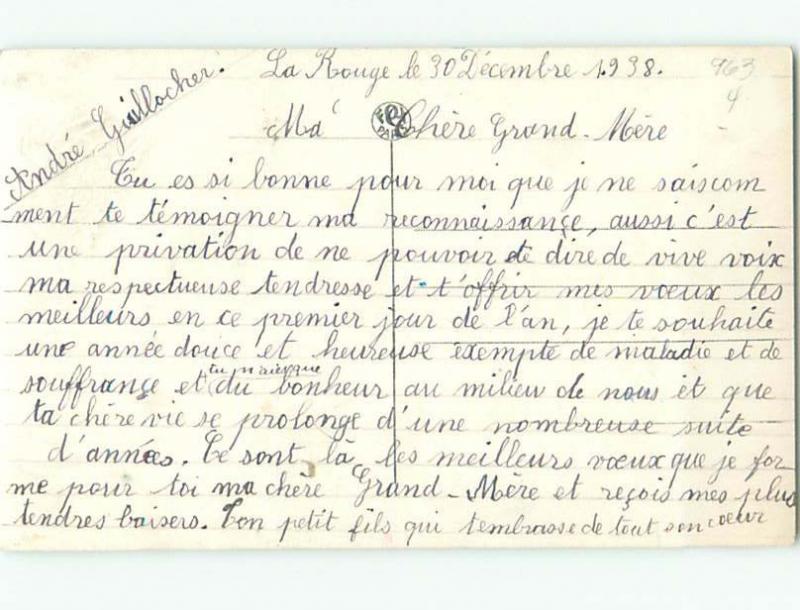 La Rouge le 30 Décembre 1938.
963
4
André Guillocher.
Ma Chère Grand-Mère
Tu es si bonne pour moi que je ne saiscom
ment te témoigner ma reconnaissançe, aussi c'est
une privation de ne pouvoir te dire de vive voix
ma respectueuse tendresse et t'offrir mes vœux les
meilleurs en ce premier jour de l'an, je te souhaite
une année douce et heureuse exempte de maladie et de
souffrançe et du bonheur au milieu de nous et que
ta chère vie se prolonge d'une nombreuse suite
d'années. Ce sont là les meilleurs vœux que je for
me pour toi ma chère Grand-Mère et reçois mes plus
tendres baisers. Ton petit fils qui tembrasse de tout son coeur